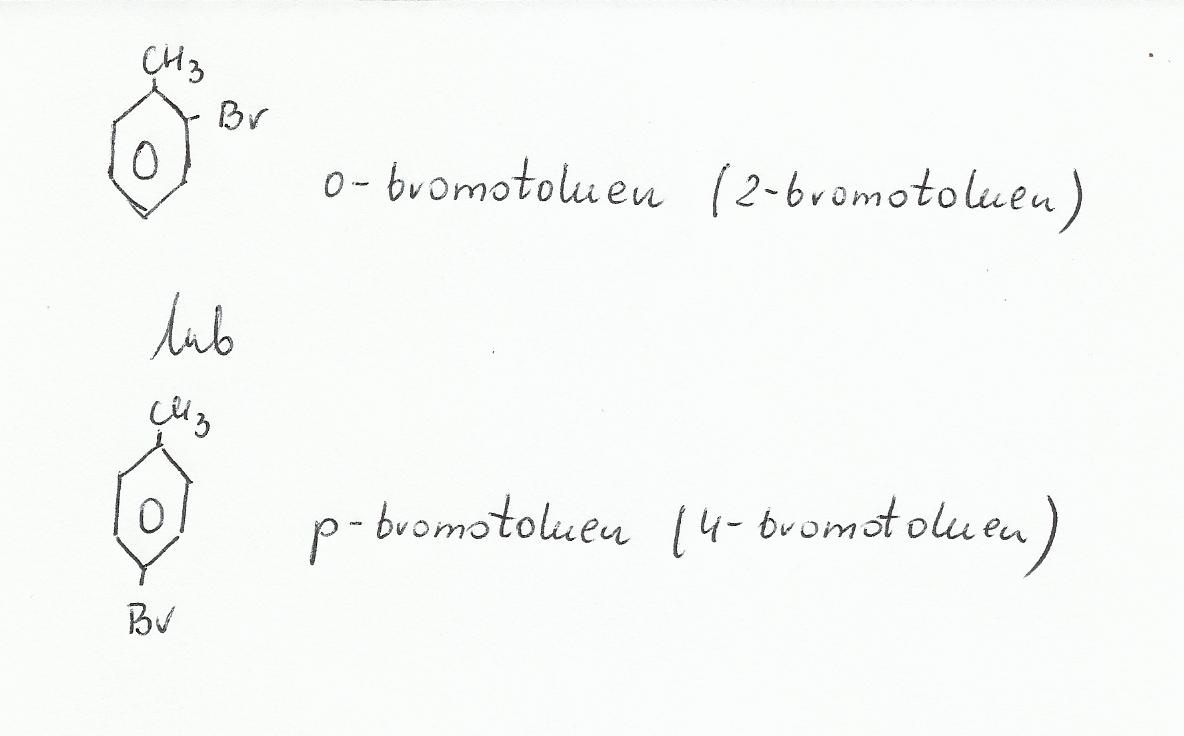 CH3
Br
o-bromotoluen (2-bromotoluen)
lub
CH3
p-bromotoluen (4-bromotoluen)
Br